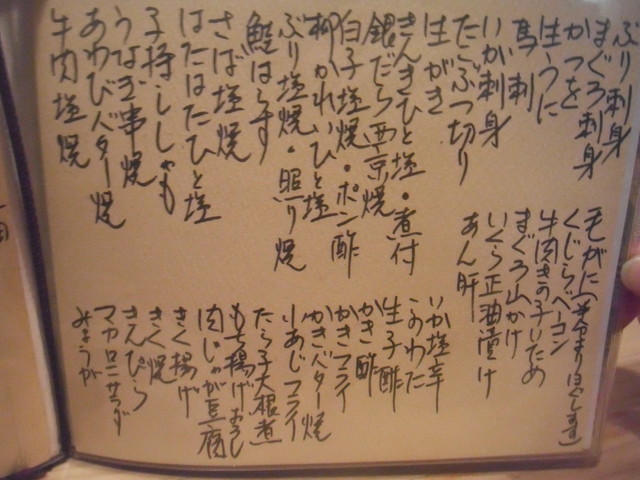 ぶり刺身
まぐろ刺身
かつを
生うに
馬刺
いか刺身
たこぶつ切り
生がき
きんきひと塩・煮付
銀だら西京焼
白子塩焼・ポン酢
柳かれいひと塩
ぶり塩焼・照り焼
鮭はらす
さば塩焼
はたはたひと塩
子持ししゃも
うなぎ串焼
あわびバター焼
牛肉塩焼
毛がに
くじらベーコン
牛肉きの子いため
まぐろ山かけ
いくら正油漬け
あん肝
いか塩辛
このわた
生子酢
かき酢
かきフライ
かきバター焼
小あじフライ
たら子大根煮
もち揚げおろし
肉じゃが豆腐
きく揚げ
きく焼
きんぴら
マカロニサラダ
みょうが